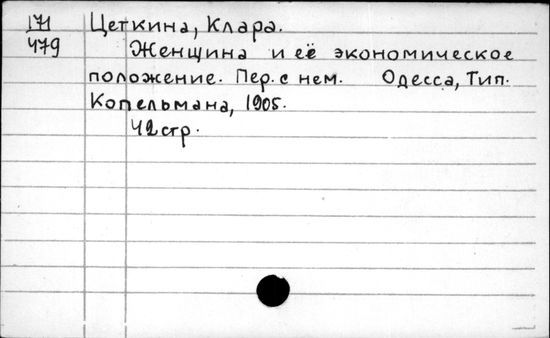 171
479
Цеткина, Клара.
Женщина и её экономическое
положение. Пер. с нем. Одесса, Тип.
Копельмана, 1905.
42 стр.